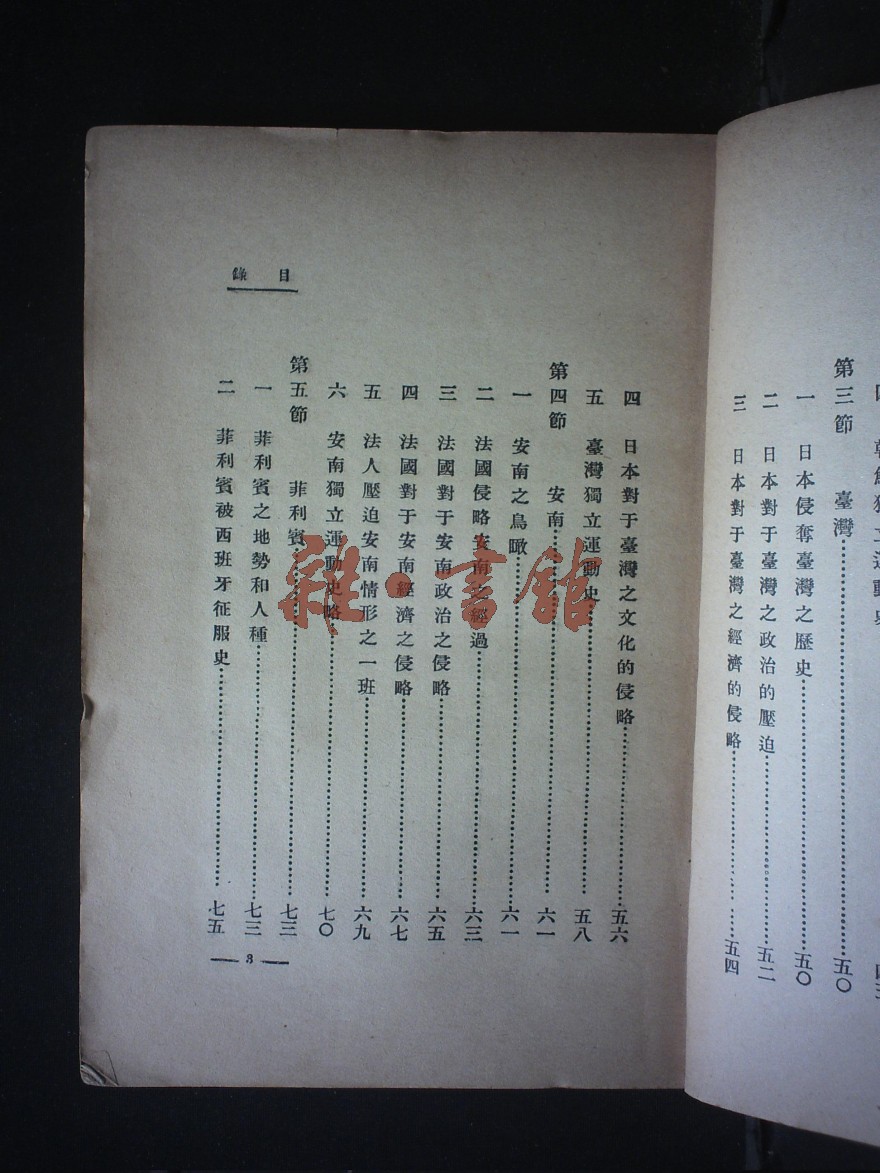 第三節 臺灣……五〇
一 日本侵奪臺灣之歷史……五〇
二 日本對于臺灣之政治的壓迫……五二
三 日本對于臺灣之經濟的侵略……五四
目錄
四 日本對于臺灣之文化的侵略……五六
五 臺灣獨立運動史……五八
第四節 安南……六一
一 安南之鳥瞰……六一
二 法國侵略安南之經過……六三
三 法國對于安南政治之侵略……六五
四 法國對于安南經濟之侵略……六七
五 法人壓迫安南情形之一班……六九
六 安南獨立運動史略……七〇
第五節 菲利賓……七三
一 菲利賓之地勢和人種……七三
二 菲利賓被西班牙征服史……七五
— 3 —
雜·書館